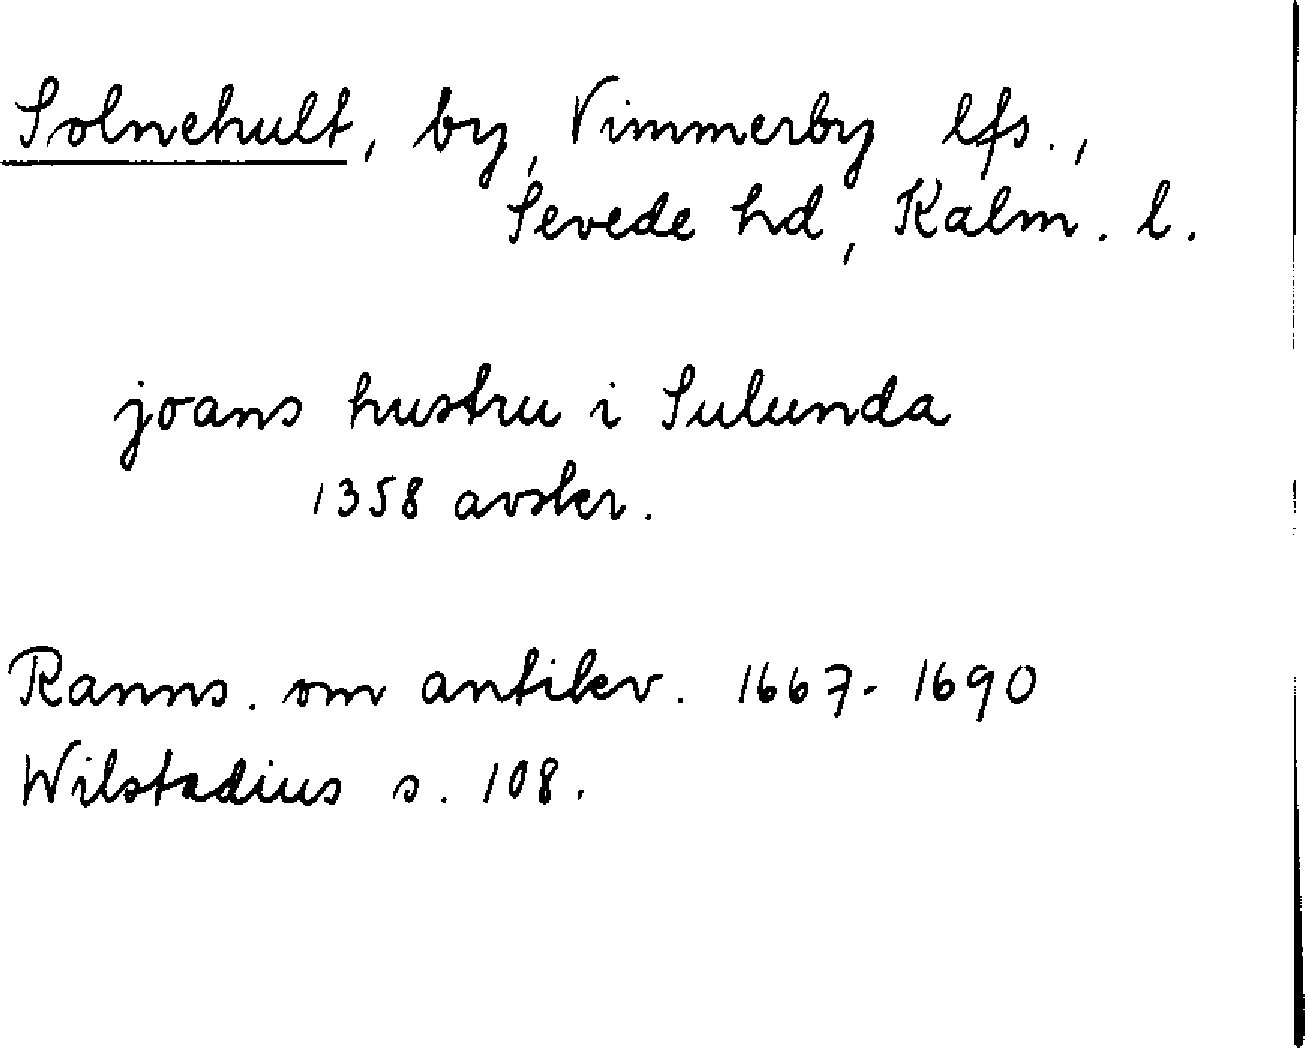 Solnehult, by, Vimmerby lfs.,
Sevede hd, Kalm. l.
joans hustru i Sulunda
1358 avskr.
Ranns. om antikv. 1667-1690
Wilstadius s. 108.